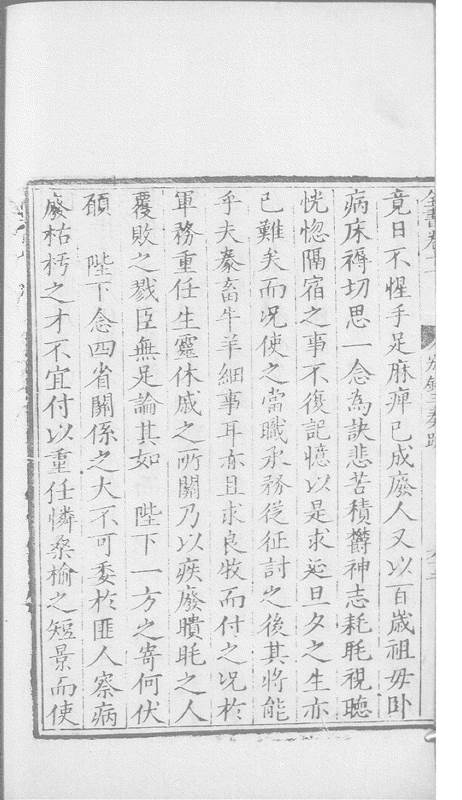 竟日不惺手足麻痺已成廢人又以百歲祖母卧
病床褥切思一念為訣悲苦積欝神志耗眊視聴
恍惚隔宿之事不復記憶以是求延旦夕之生亦
已難矣而况使之當職承務從征討之後其將能
乎夫豢畜牛羊細事耳亦且求良牧而付之况扵
軍務重任生靈休戚之所關乃以疾廢瞶眊之人
覆敗之戮臣無足論其如　陛下一方之寄何伏
願　陛下念四省關係之大不可委扵匪人察病
廢枯朽之才不宜付以重任憐桑榆之短景而使
全書卷十
别錄三奏疏